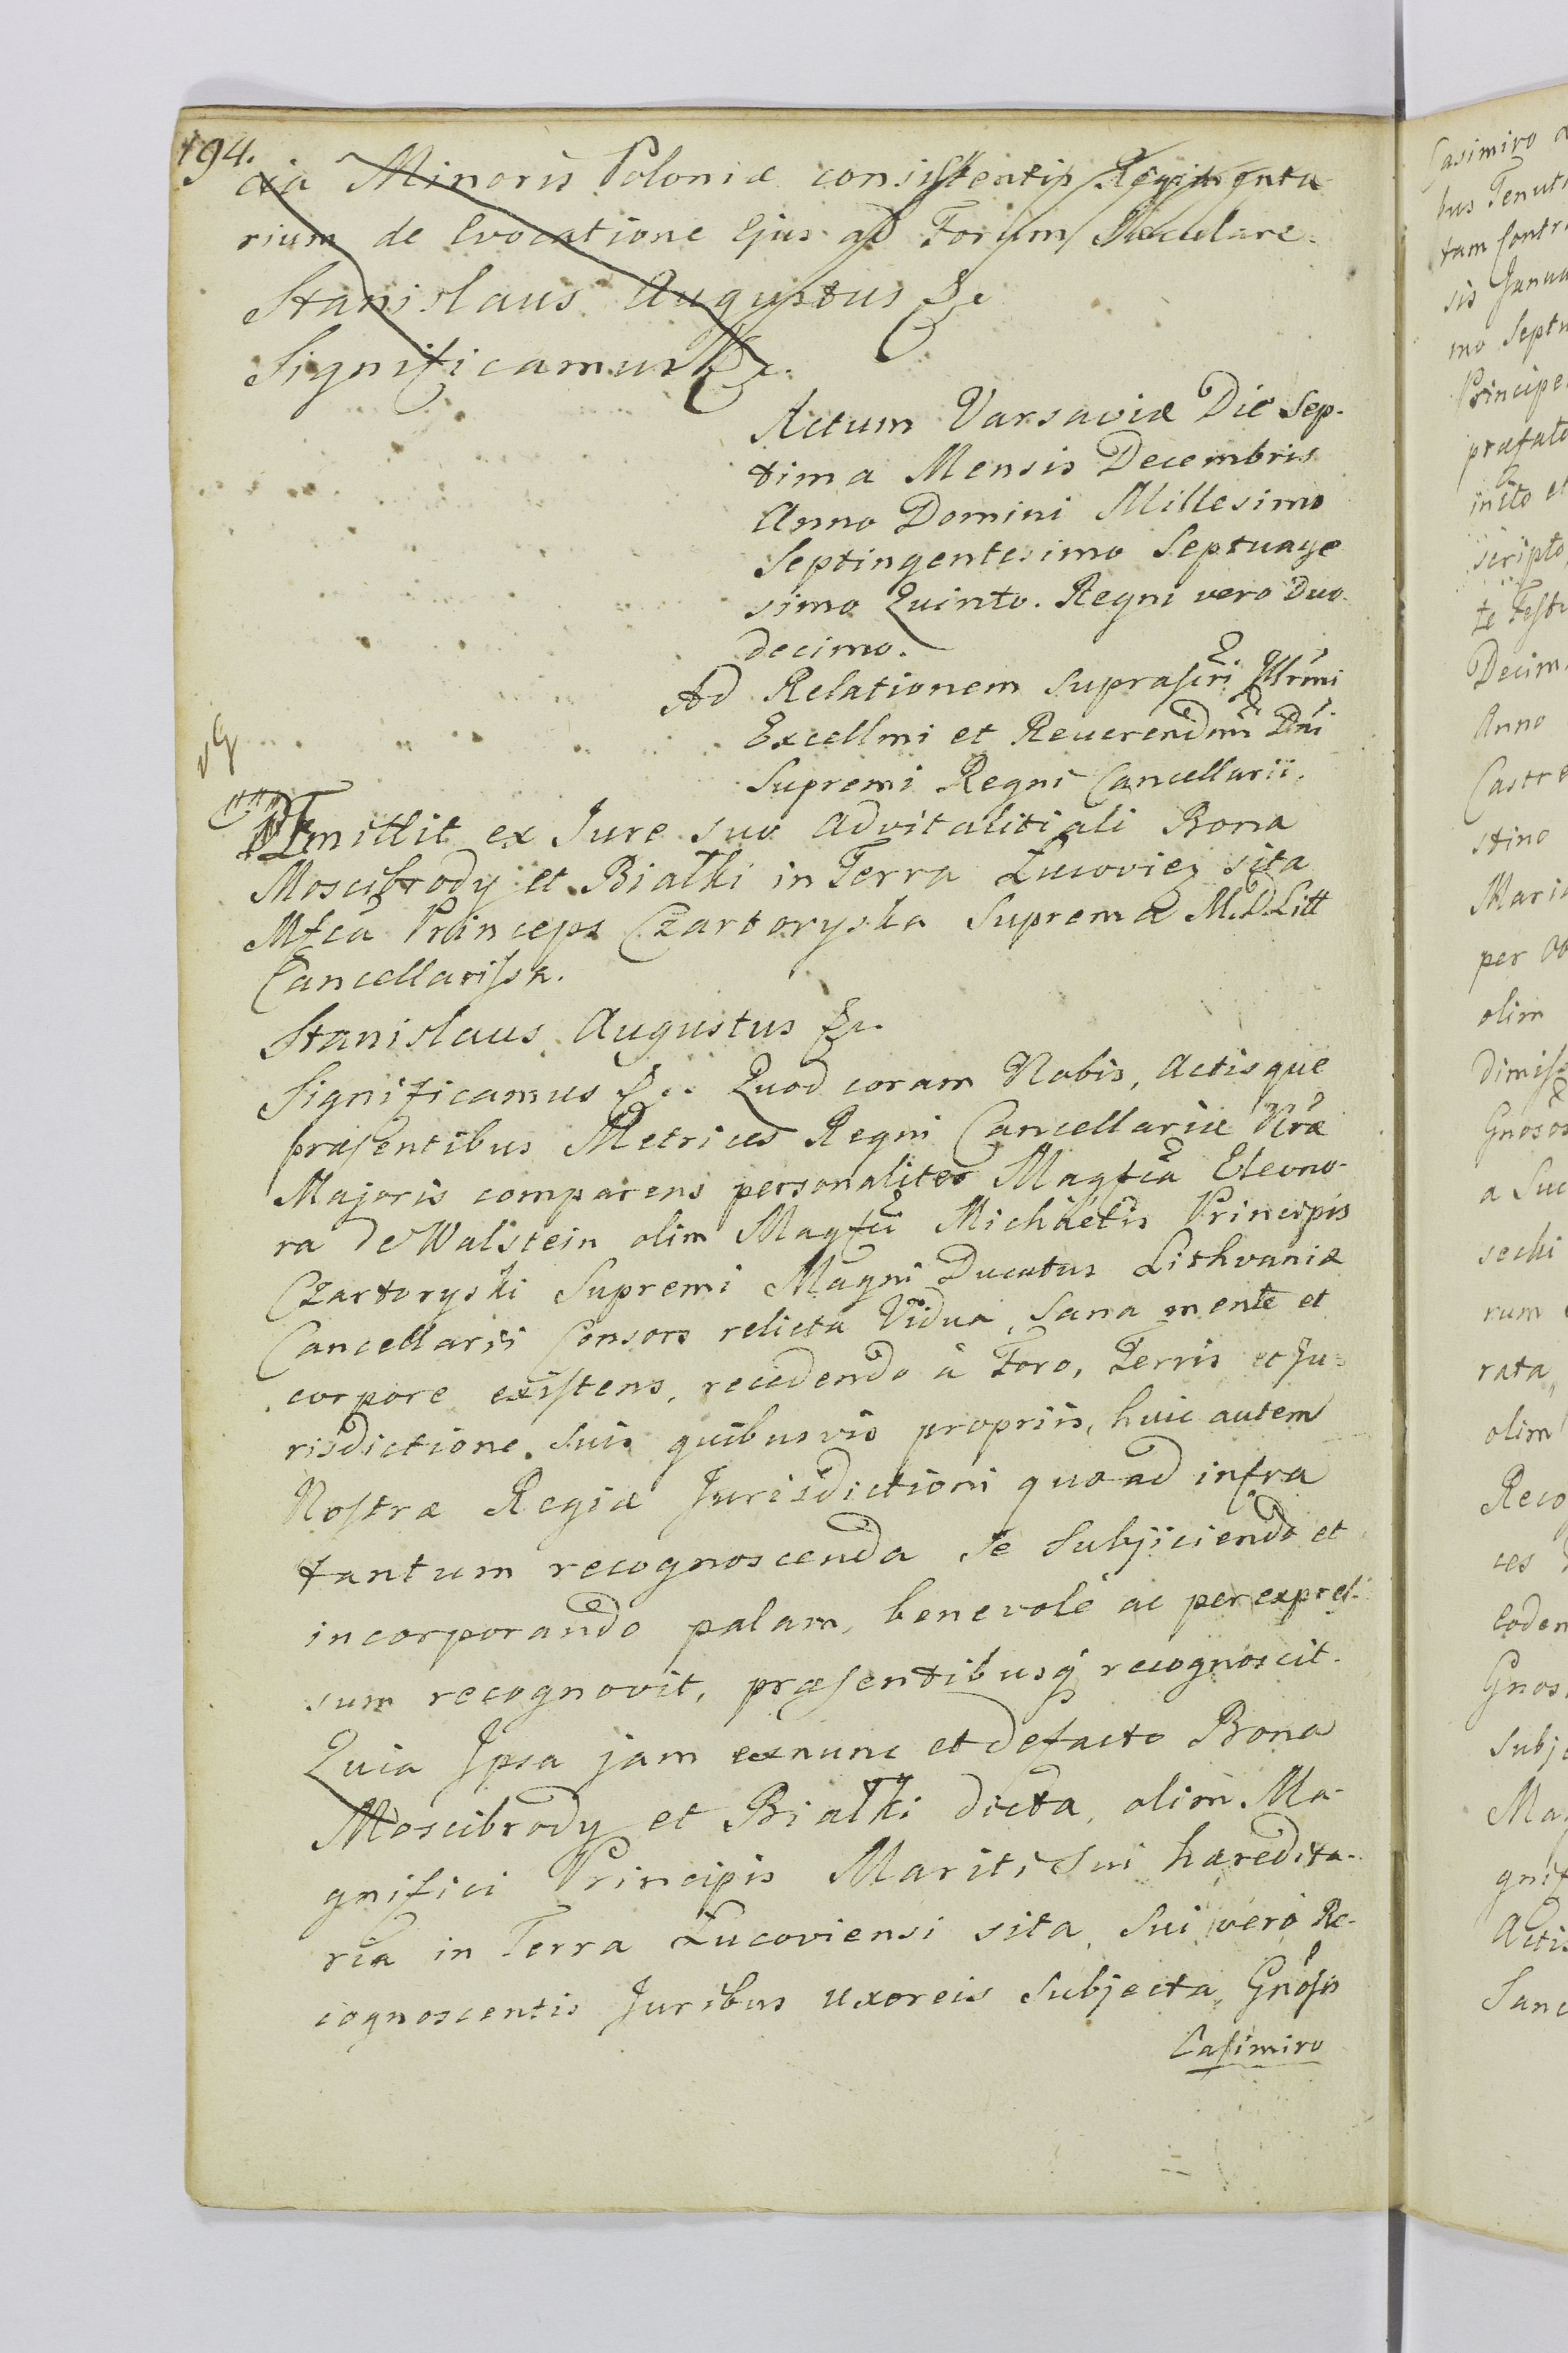 194.
cia Minoris Poloniæ consistentis Regimenta
rium de Evocatione Ejus ad Forum Sæculare.
Stanislaus Augustus &c
Significamus &c.
Actum Varsaviæ Die Sep-
tima Mensis Decembris
Anno Domini Millesimo
Septingentesimo Septuage
simo Quinto. Regni vero Duo-
decimo.
Ad Relationem suprascri Illrmi
Excellmi et Reuerendmi Dni
Supremi Regni Cancellarii.
Dimittit ex Jure suo Advitalitiali Bona
Moscibrody et Białki in Terra Lucovien sita
Mfca Princeps Czartoryska Suprema M.D.Litt
Cancellarissa.
Stanislaus Augustus &c.
Significamus &c. Quod coram Nobis, Actisque
præsentibus Metrices Regni Cancellariæ Nræ
Majoris comparens personaliter Magfca Eleono-
ra de Walstein olim Magfci Michaelis Principis
Czartoryski Supremi Magni Ducatus Lithvaniæ
Cancellarii Consors relicta Vidua, Sana mente et
corpore existens, recedendo à Foro, Terris et Ju-
risdictione suis quibusvis propriis, huic autem
Nostræ Regiæ Jurisdictioni quoad infra
tantum recognoscenda se Subjiciendo et
incorporando palam, benevolè ac per expres-
sum recognovit, præsentibusq recognoscit.
Quia Ipsa jam ex nunc et de facto Bona
Moscibrody et Białki dicta, olim Ma-
gnifici Principis Mariti sui hæredita-
ria in Terra Lucoviensi sita, sui verò Re-
cognoscentis Juribus uxoreis subjecta, Gnosis
Casimiro
Casimiro
bus Tenut
tam Contr
sis Janua
mo Septu
Principe
præfato
inito et
scripto
Decim
Anno
Castre
stino
Maria
per
olim
dimiss
Gnosos
a Suc
sechi
rum
rata
olim
Reco
ces
Eodem
Gnos
subje
Ma
gnif
Actis
Sanc